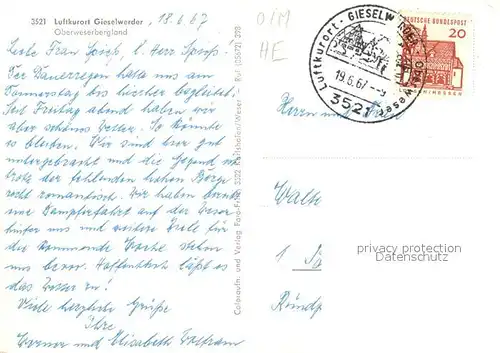 3521 Luftkurort Gieselwerder, 18.6.67
Oberweserbergland
Liebe Frau Spieß, l. Herr Spieß.
Der Dauerregen hatte uns am
Donnerstag bis hierher begleitet.
Seit Freitag abend haben wir
aber schönes Wetter. So könnte
es bleiben. Wir sind hier gut
untergebracht und die Gegend ist
trotz der fehlenden hohen Berge
recht romantisch. Wir haben bereits
eine Dampferfahrt auf der Weser
hinter uns und weitere Ziele für
die kommende Woche stehen
uns bevor. Hoffentlich läßt es
das Wetter zu!
Viele herzliche Grüße
Ihre
Werner und Elisabeth Wolfram
Coloraufn. und Verlag Foto-Freist 3522 Karlshafen/Weser - Ruf (05672) 398
01M
HE
Luftkurort · GIESELWERDER (Oberweser)
19.6.67--9
3521
DEUTSCHE BUNDESPOST
20
Herrn und Frau
Walte
1
Ründp
privacy protection
Datenschutz